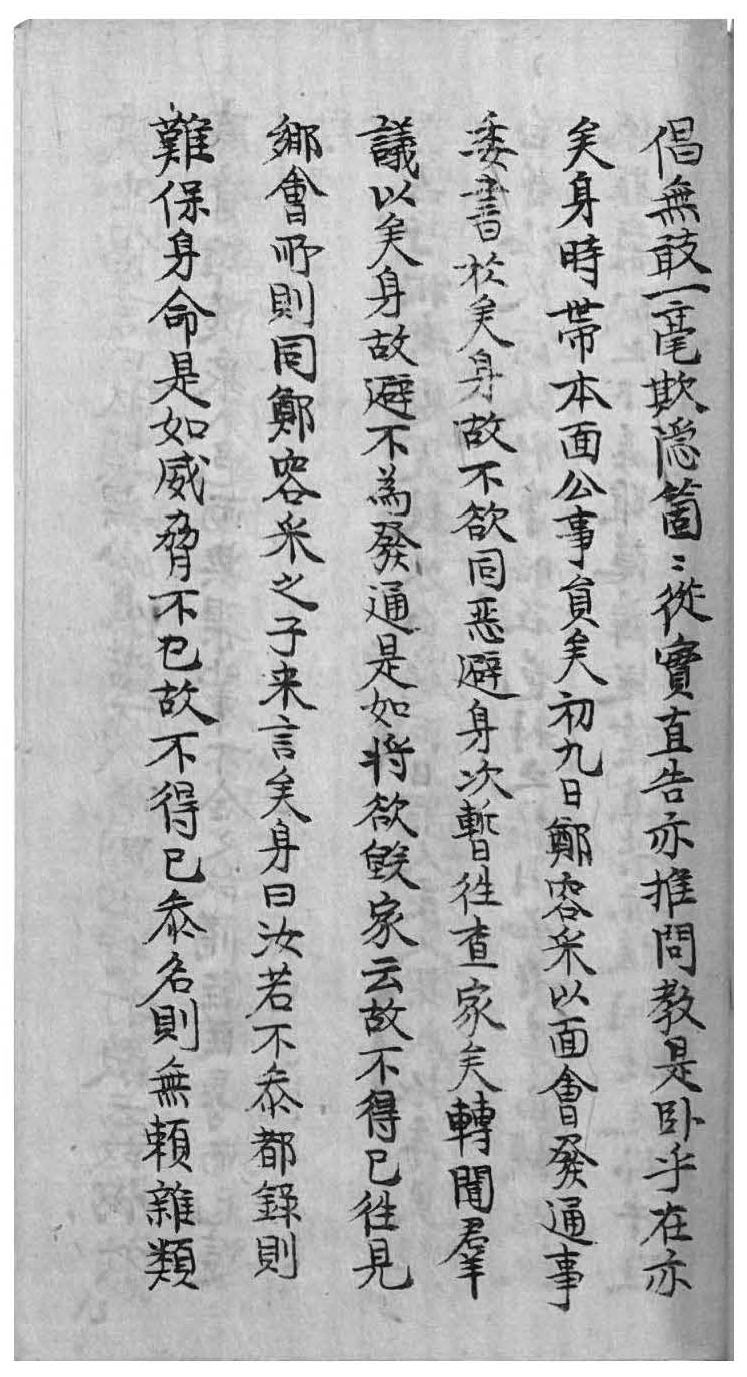 倡無敢一毫欺隱箇〻從實直告亦推問教是卧乎在亦
矣身時帶本面公事員矣初九日鄭容采以面會發通事
委書扵矣身故不欲同惡避身次暫徃査家矣轉聞羣
議以矣身故避不為發通是如将欲毀家云故不得已徃見
鄕會所則同鄭容采之子来言矣身曰汝若不叅都錄則
難保身命是如威脅不已故不得已叅名則無賴雜類